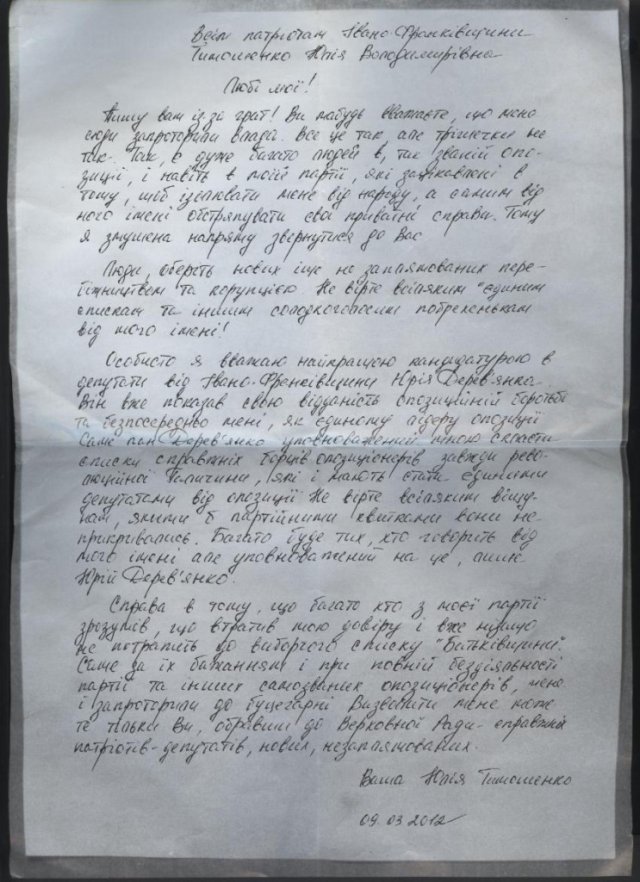 Всім патріотам Івано-Франківщини
Тимошенко Юлія Володимирівна
Любі мої!
Пишу вам із-за грат! Ви мабуть вважаєте, що мене
сюди запроторила влада. Все це так але трішечки не
так. Так, є дуже багато людей в, так званій опо-
зиції, і навіть в моїй партії, які зацікавлені в
тому, щоб ізолювати мене від народу, а самим від
мого імені обстряпувати свої приватні справи. Тому
я змушена напряму звернутися до Вас
Люди, оберіть нових іще не заплямованих пере-
біжництвом та корупцією Не вірте всіляким "єдиним
спискам та іншим солодкоголосим побрехенькам
від мого імені!
Особисто я вважаю найкращою кандидатурою в
депутати від Івано-Франківщини Юрія Дерев'янка
Він вже показав свою відданість опозиційній боротьбі
та безпосередньо мені, як єдиному лідеру опозиції
Саме пан Дерев'янко уповноважений мною скласти
списки справжніх борців опозиціонерів завжди рево-
люційної Галичини, які і мають стати єдиними
депутатами від опозиції Не вірте всіляким віщу-
нам, якими б партійними квитками вони не
прикривались. Багато буде тих, хто говорить від
мого імені але уповноважений на це, лише
Юрій Дерев'янко.
Справа в тому, що багато хто з моєї партії
зрозумів, що втратив мою довіру і вже нізащо
не потрапить до виборчого списку "Батьківщини".
Саме за їх бажанням і при повній бездіяльності
партії та інших самозваних опозиціонерів, мене
і запроторили до буцегарні Визволити мене може
те тільки Ви, обравши до Верховної Ради справжніх
патріотів-депутатів, нових, незаплямованих.
Ваша Юлія Тимошенко
09.03.2012